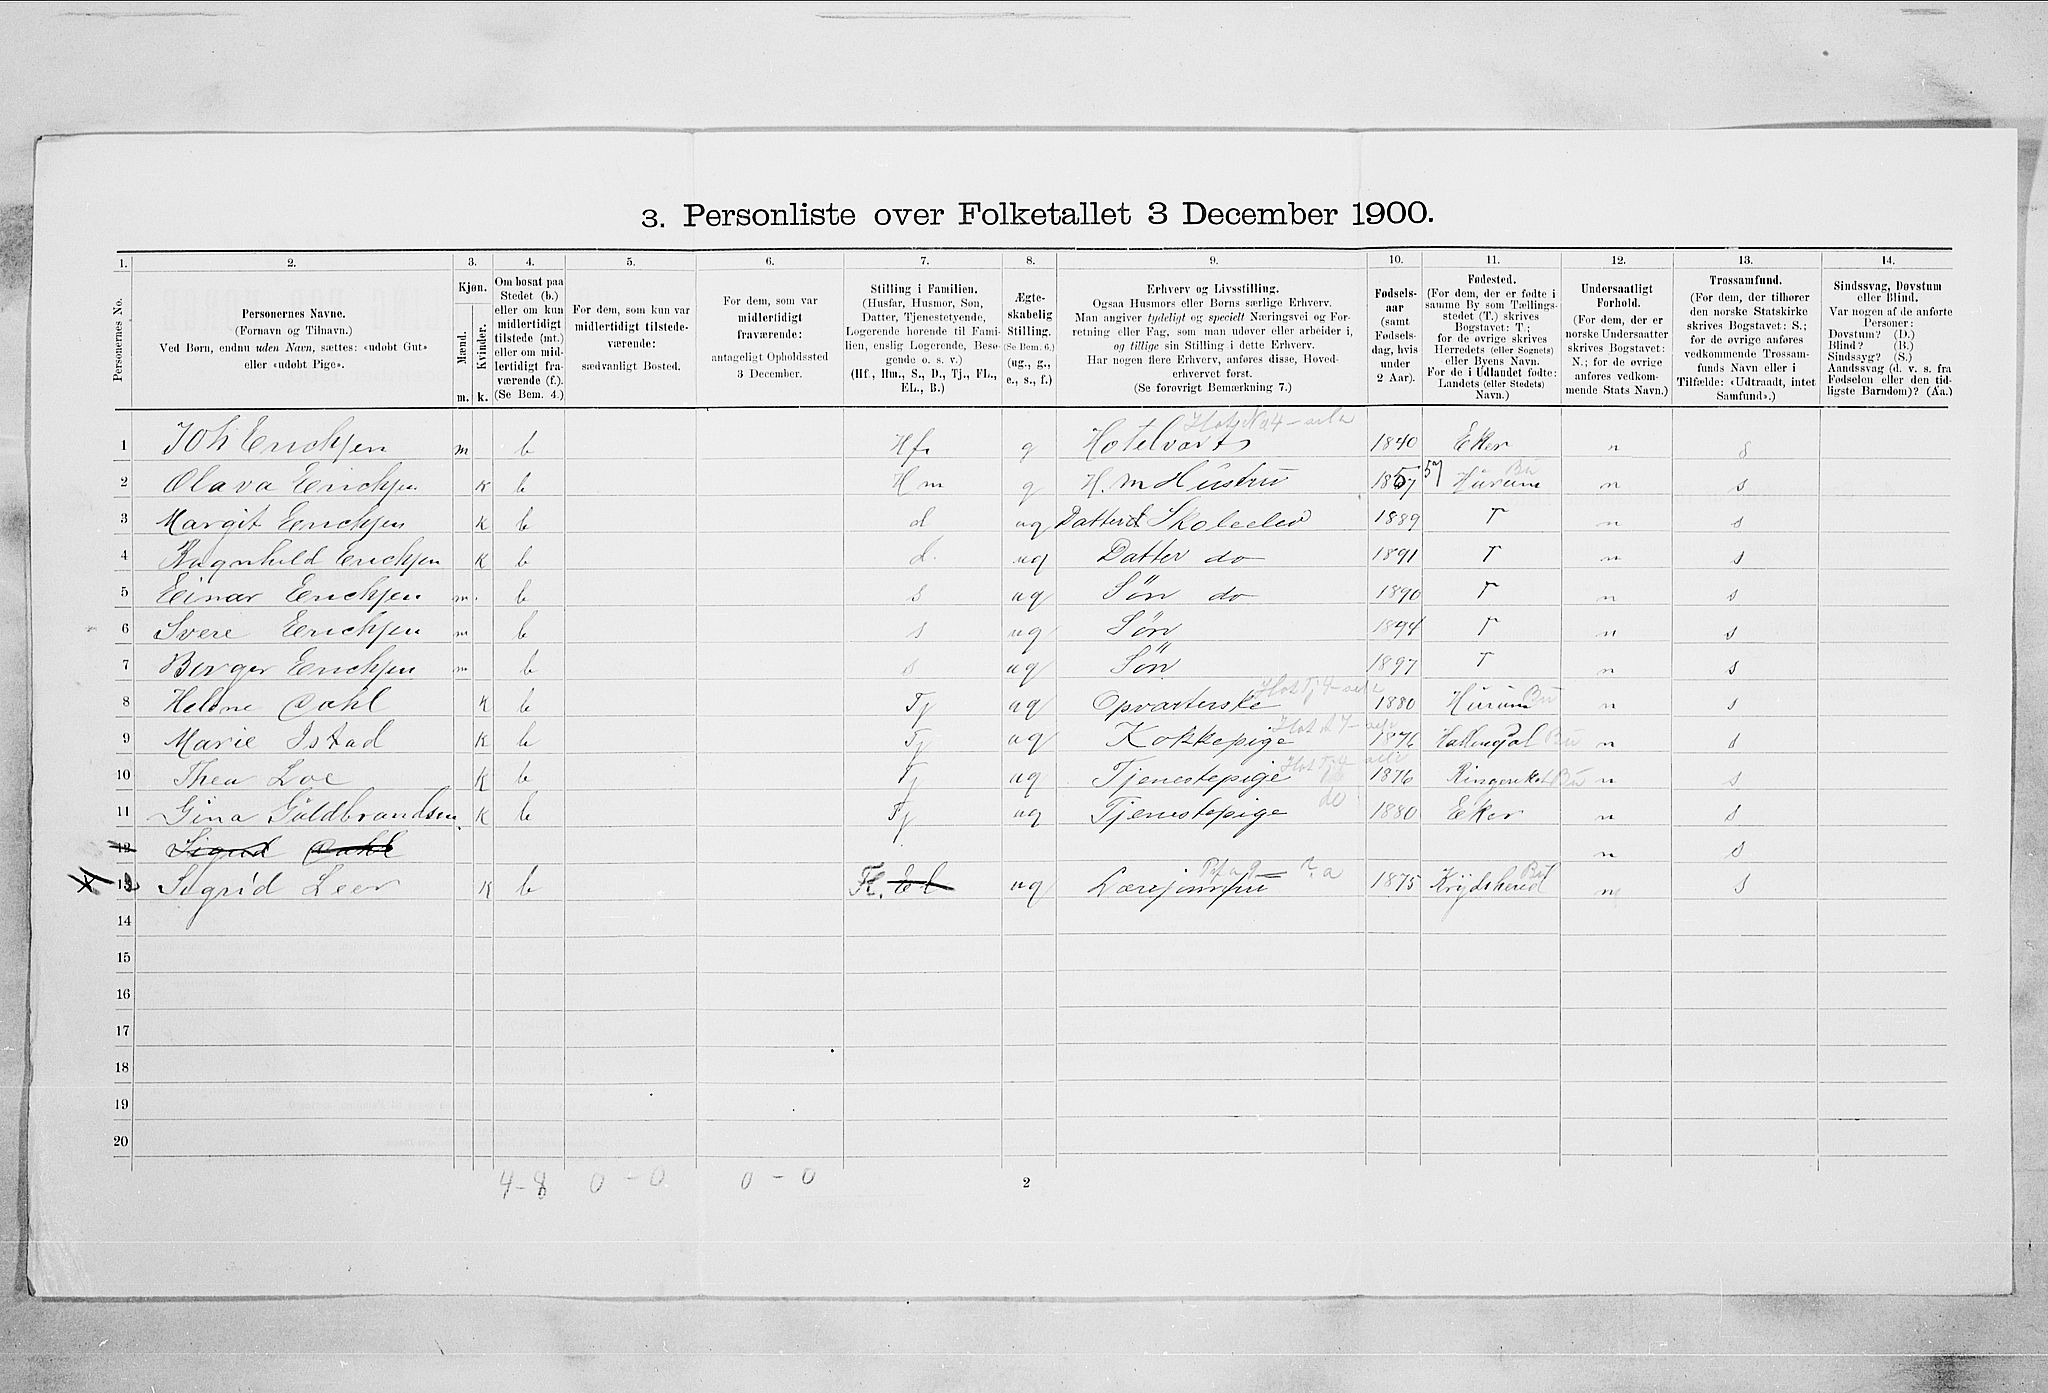 3. Personliste over Folketallet 3 December 1900.
1. 2. 3. 4. 5. 6. 7. 8. 9. 10. 11. 12. 13. 14.
Personernes No.
Personernes Navne.
(Fornavn og Tilnavn.)
Ved Børn, endnu uden Navn, sættes: «udøbt Gut»
eller «udøbt Pige».
Kjøn.
Mænd.
Kvinder.
m. k.
Om bosat paa
Stedet (b.)
eller om kun
midlertidigt
tilstede (mt.)
eller om mid-
lertidigt fra-
værende (f.).
(Se Bem. 4.)
For dem, som kun var
midlertidigt tilstede-
værende:
sædvanligt Bosted.
For dem, som var
midlertidigt
fraværende:
antageligt Opholdssted
3 December.
Stilling i Familien.
(Husfar, Husmor, Søn,
Datter, Tjenestetyende,
Logerende hørende til Fami-
lien, enslig Logerende, Besø-
gende o. s. v.)
(Hf., Hm., S., D., Tj., FL.,
EL., B.)
Ægte-
skabelig
Stilling.
(Se Bem. 6.)
(ug., g.,
e., s., f.)
Erhverv og Livsstilling.
Ogsaa Husmors eller Børns særlige Erhverv.
Man angiver tydeligt og specielt Næringsvei og For-
retning eller Fag, som man udøver eller arbeider i,
og tillige sin Stilling i dette Erhverv.
Har nogen flere Erhverv, anføres disse, Hoved-
erhvervet først.
(Se forøvrigt Bemærkning 7.)
Fødsels-
aar
(samt
Fødsels-
dag, hvis
under
2 Aar).
Fødested.
(For dem, der er fødte i
samme By som Tællings-
stedet (T.) skrives
Bogstavet: T.;
for de øvrige skrives
Herredets (eller Sognets)
eller Byens Navn.
For de i Udlandet fødte:
Landets (eller Stedets)
Navn.)
Undersaatligt
Forhold.
(For dem, der er
norske Undersaatter
skrives Bogstavet:
N.; for de øvrige
anføres vedkom-
mende Stats Navn.)
Trossamfund.
(For dem, der tilhører
den norske Statskirke
skrives Bogstavet: S.;
for de øvrige anføres
vedkommende Trossam-
funds Navn eller i
Tilfælde: «Udtraadt, intet
Samfund».)
Sindssvag, Døvstum
eller Blind.
Var nogen af de anførte
Personer:
Døvstum? (D.)
Blind? (B.)
Sindssyg? (S.)
Aandssvag (d. v. s. fra
Fødselen eller den tid-
ligste Barndom)? (Aa.)
1 Joh Erichsen m b Hf. g Hotelvært 1840 Eker n s
2 Olava Erichsen K b Hm g H.m Hustru 1857 57 Hurum Bu n s
3 Margit Erichsen K b d ug Datter Skoleelev 1889 T n s
4 Ragnhild Erichsen K b d. ug Datter do 1891 T n s
5 Einar Erichsen m. b s ug Søn do 1890 T n s
6 Svere Erichsen m b s ug Søn 1894 T n s
7 Birger Erichsen m b s ug Søn 1897 T n s
8 Helene Dahl K b Tj ug Opvarterske 1880 Hurum Bu n s
9 Marie Istad K b Tj ug Kokkepige 1876 Hallingdal Bu n s
10 Thea Loe K b Tj ug Tjenestepige 1876 Ringeriket Bu n s
11 Gina Guldbrandsen K b Tj ug Tjenestepige do 1880 Eker n s
12 Sigrid Dahl n s
13 Sigrid Leer K b Fl. El ug Lærejomfru 1875 Krydsherred Bu n s
14
15
16
17
18
19
20
4-8 0-0 0-0
2